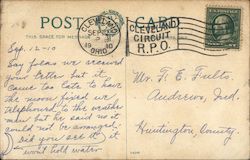 POST CARD
THIS SPACE FOR MESSAGE
CLEVELAND
SEP 12
1910
OHIO
CLEVELAND
CIRCUIT
R.P.O.
Sep. 12-10
Say folks we received
your letter but it
came too late to have
the moon fixed we
telephoned to the weather
man but he said no it
could not be arranged.
Did you see it, it
wouldn't hold water
Mr. F. E. Fults.
Andrews, Ind.
Huntington County.